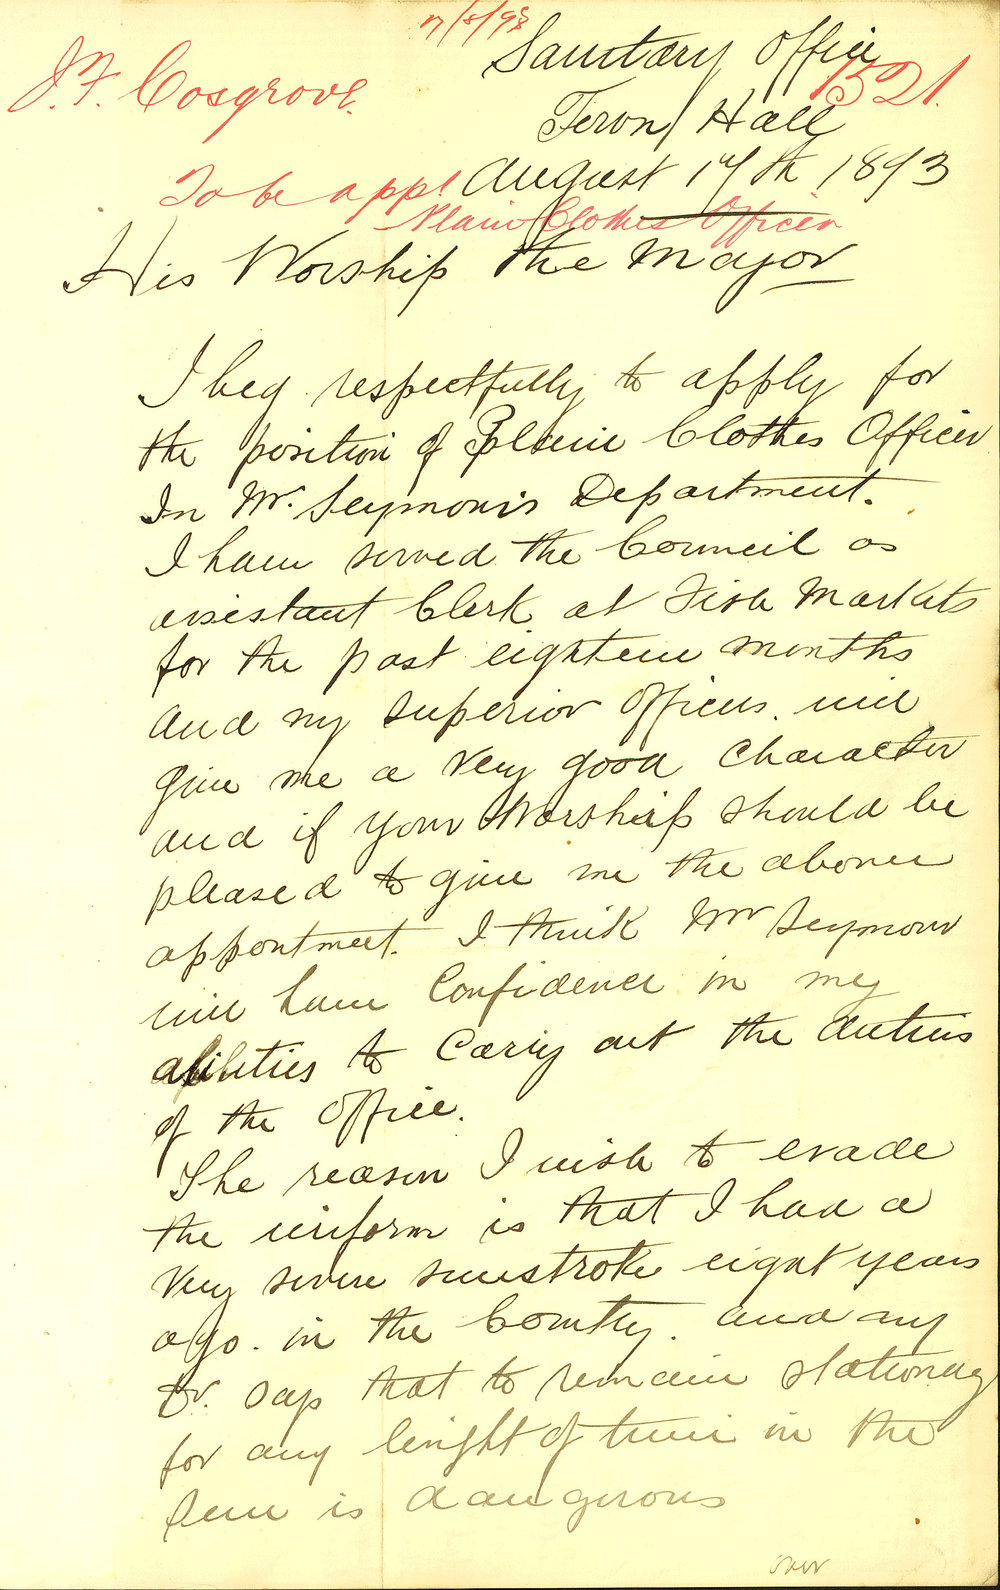 17/8/93
Sanitary Office
J. F. Cosgrove.
1521.
Town Hall
August 17th 1893
To be app!
Plain Clothes Officer
His Worship the Mayor
I beg respectfully to apply for
the position of Plain Clothes Officer
In Mr. Seymour's Department.
I have served the Council as
assistant Clerk at Fish Markets
for the past eighteen months
and my superior Officers. will
give me a very good Character
and if your Worship should be
pleased to give me the above
appontment. I think Mr Seymour
will have Confidence in my
abilities to Carry out the duties
of the Office.
The reason I wish to evade
the uniform is that I had a
very severe sunstroke eight years
ago. in the Country. and my
Dr. says that to remain stationary
for any lenght of time in the
Sun is dangerous
over